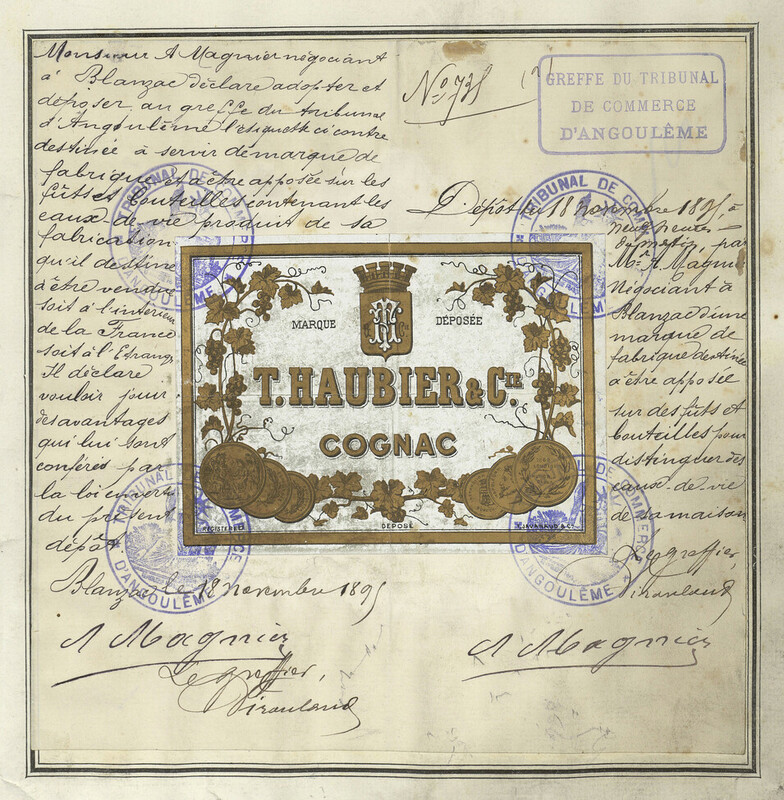 Monsieur A Magnier négociant
à Blanzac déclare adopter et
déposer au greffe du tribunal
d'Angoulême l'étiquette ci contre
destinée à servir de marque de
fabrique et à être apposée sur les
fûts et bouteilles contenant les
eaux de vie produit de sa
fabrication
qu'il destine
à être vendu
soit à l'intérieur
de la France
soit à l'Etranger
Il déclare
vouloir jouir
des avantages
qui lui sont
conférés par
la loi en vertu
du présent
dépôt
Blanzac le 18 novembre 1895
A Magnier
Le greffier,
No 735
GREFFE DU TRIBUNAL
DE COMMERCE
D'ANGOULÊME
Dépôt du 18 novembre 1895, à
neuf heures
du matin, par
Mr A. Magnier
Négociant à
Blanzac d'une
marque de
fabrique destinée
à être apposée
sur des fûts et
bouteilles pour
distinguer des
eaux-de-vie
de sa maison
Le greffier,
A Magnier
MARQUE DÉPOSÉE
T. HAUBIER & CIE.
COGNAC
REGISTERED
DÉPOSÉ
TRIBUNAL DE COMMERCE
D'ANGOULÊME
TRIBUNAL DE COMMERCE
D'ANGOULÊME
TRIBUNAL DE COMMERCE
D'ANGOULÊME
TRIBUNAL DE COMMERCE
D'ANGOULÊME